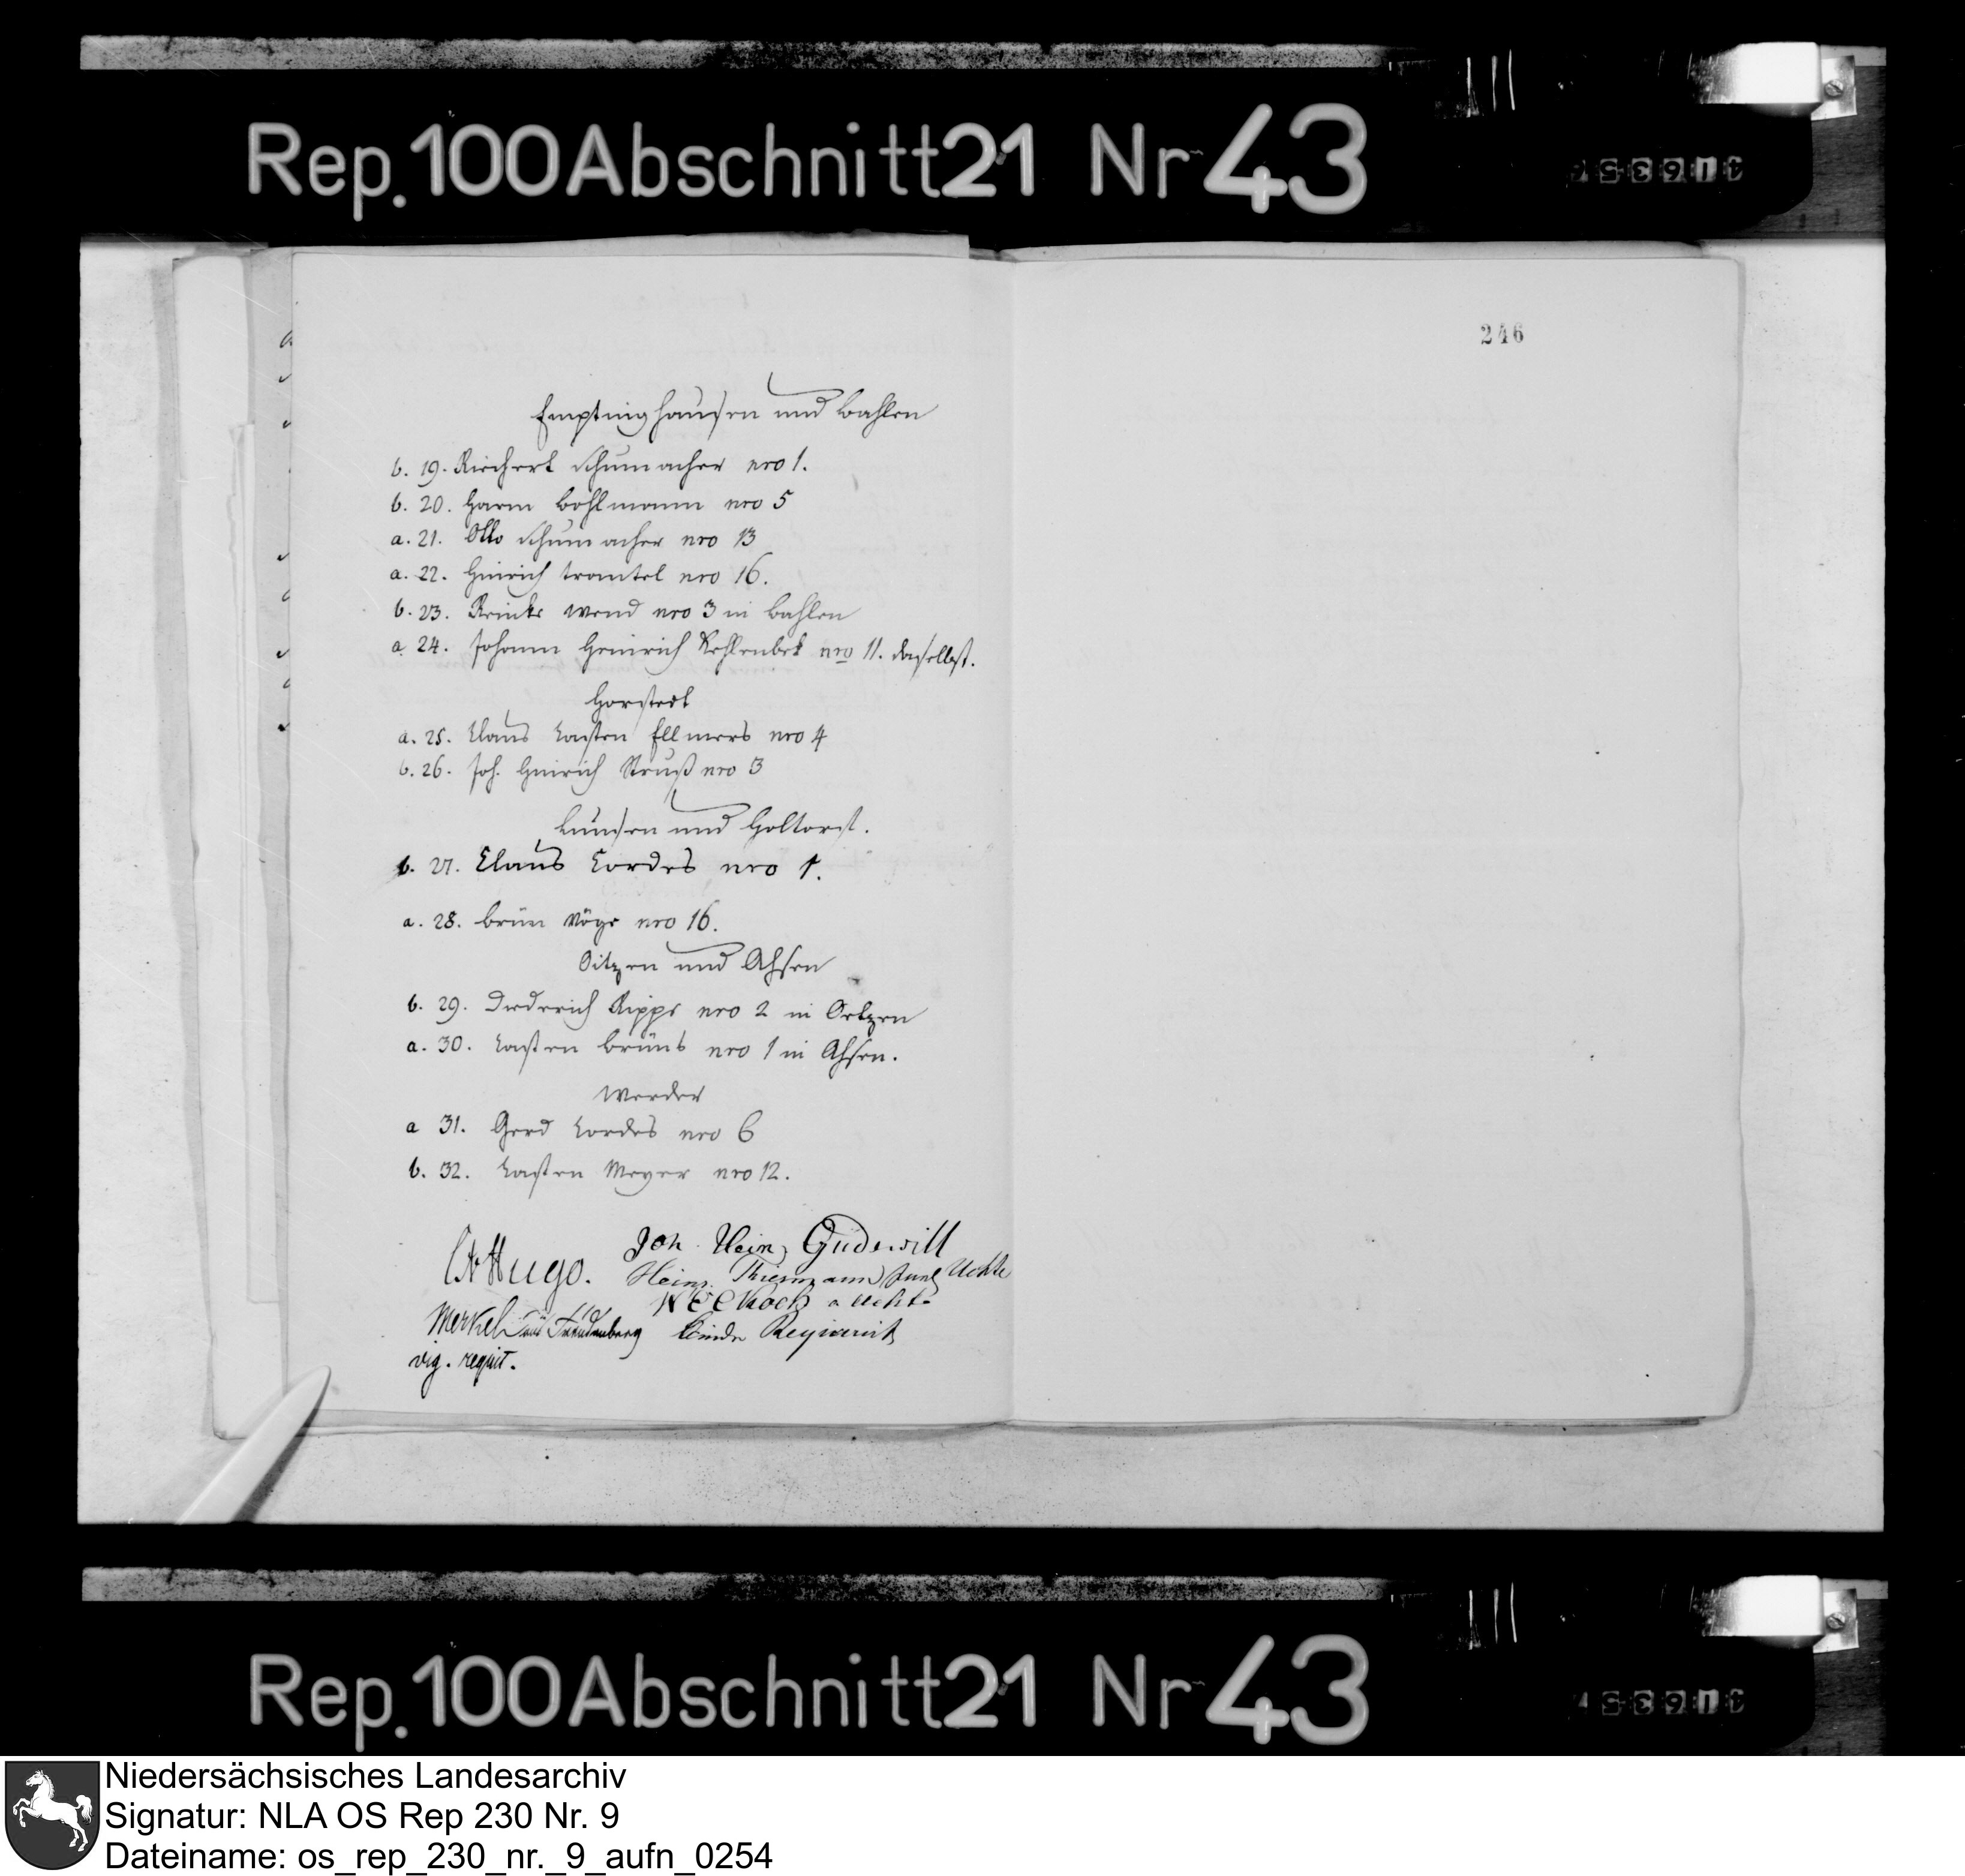 Rep. 100 Abschnitt 21 Nr 43
246
Emptinghausen und Bahlen
b. 19. Riechert Schumacher nro 1.
b. 20. Harm Bohlmann nro 5
a. 21. Otto Schumacher nro 13
a. 22. Hinrich nro 16.
b. 23. Reinke Wend nro 3 in Bahlen
a. 24. Johann Heinrich nro 11. daselbst.
Horstedt
a. 25. Claus Casten Ellmers nro 4
b. 26. Joh. Hinrich Struß nro 3
Lunsen und Holtorst.
b. 27. Claus Cordes nro 1.
a. 28. Brün Röge nro 16.
Oitzen und Ahsen
b. 29. Diederich Rippe nro 2 in Oetzen
a. 30. Casten Brüns nro 1 in Ahsen.
Werder
a 31. Gerd Cordes nro 6
b. 32. Casten Meyer nro 12.
Hugo. Joh. Hein Güdewill
Heinr. Thiermann Uchte
Koch a Uchte
Merkel aus Freudenberg
vig. requis.
Rep. 100 Abschnitt 21 Nr 43
Niedersächsisches Landesarchiv
Signatur: NLA OS Rep 230 Nr. 9
Dateiname: os_rep_230_nr._9_aufn_0254